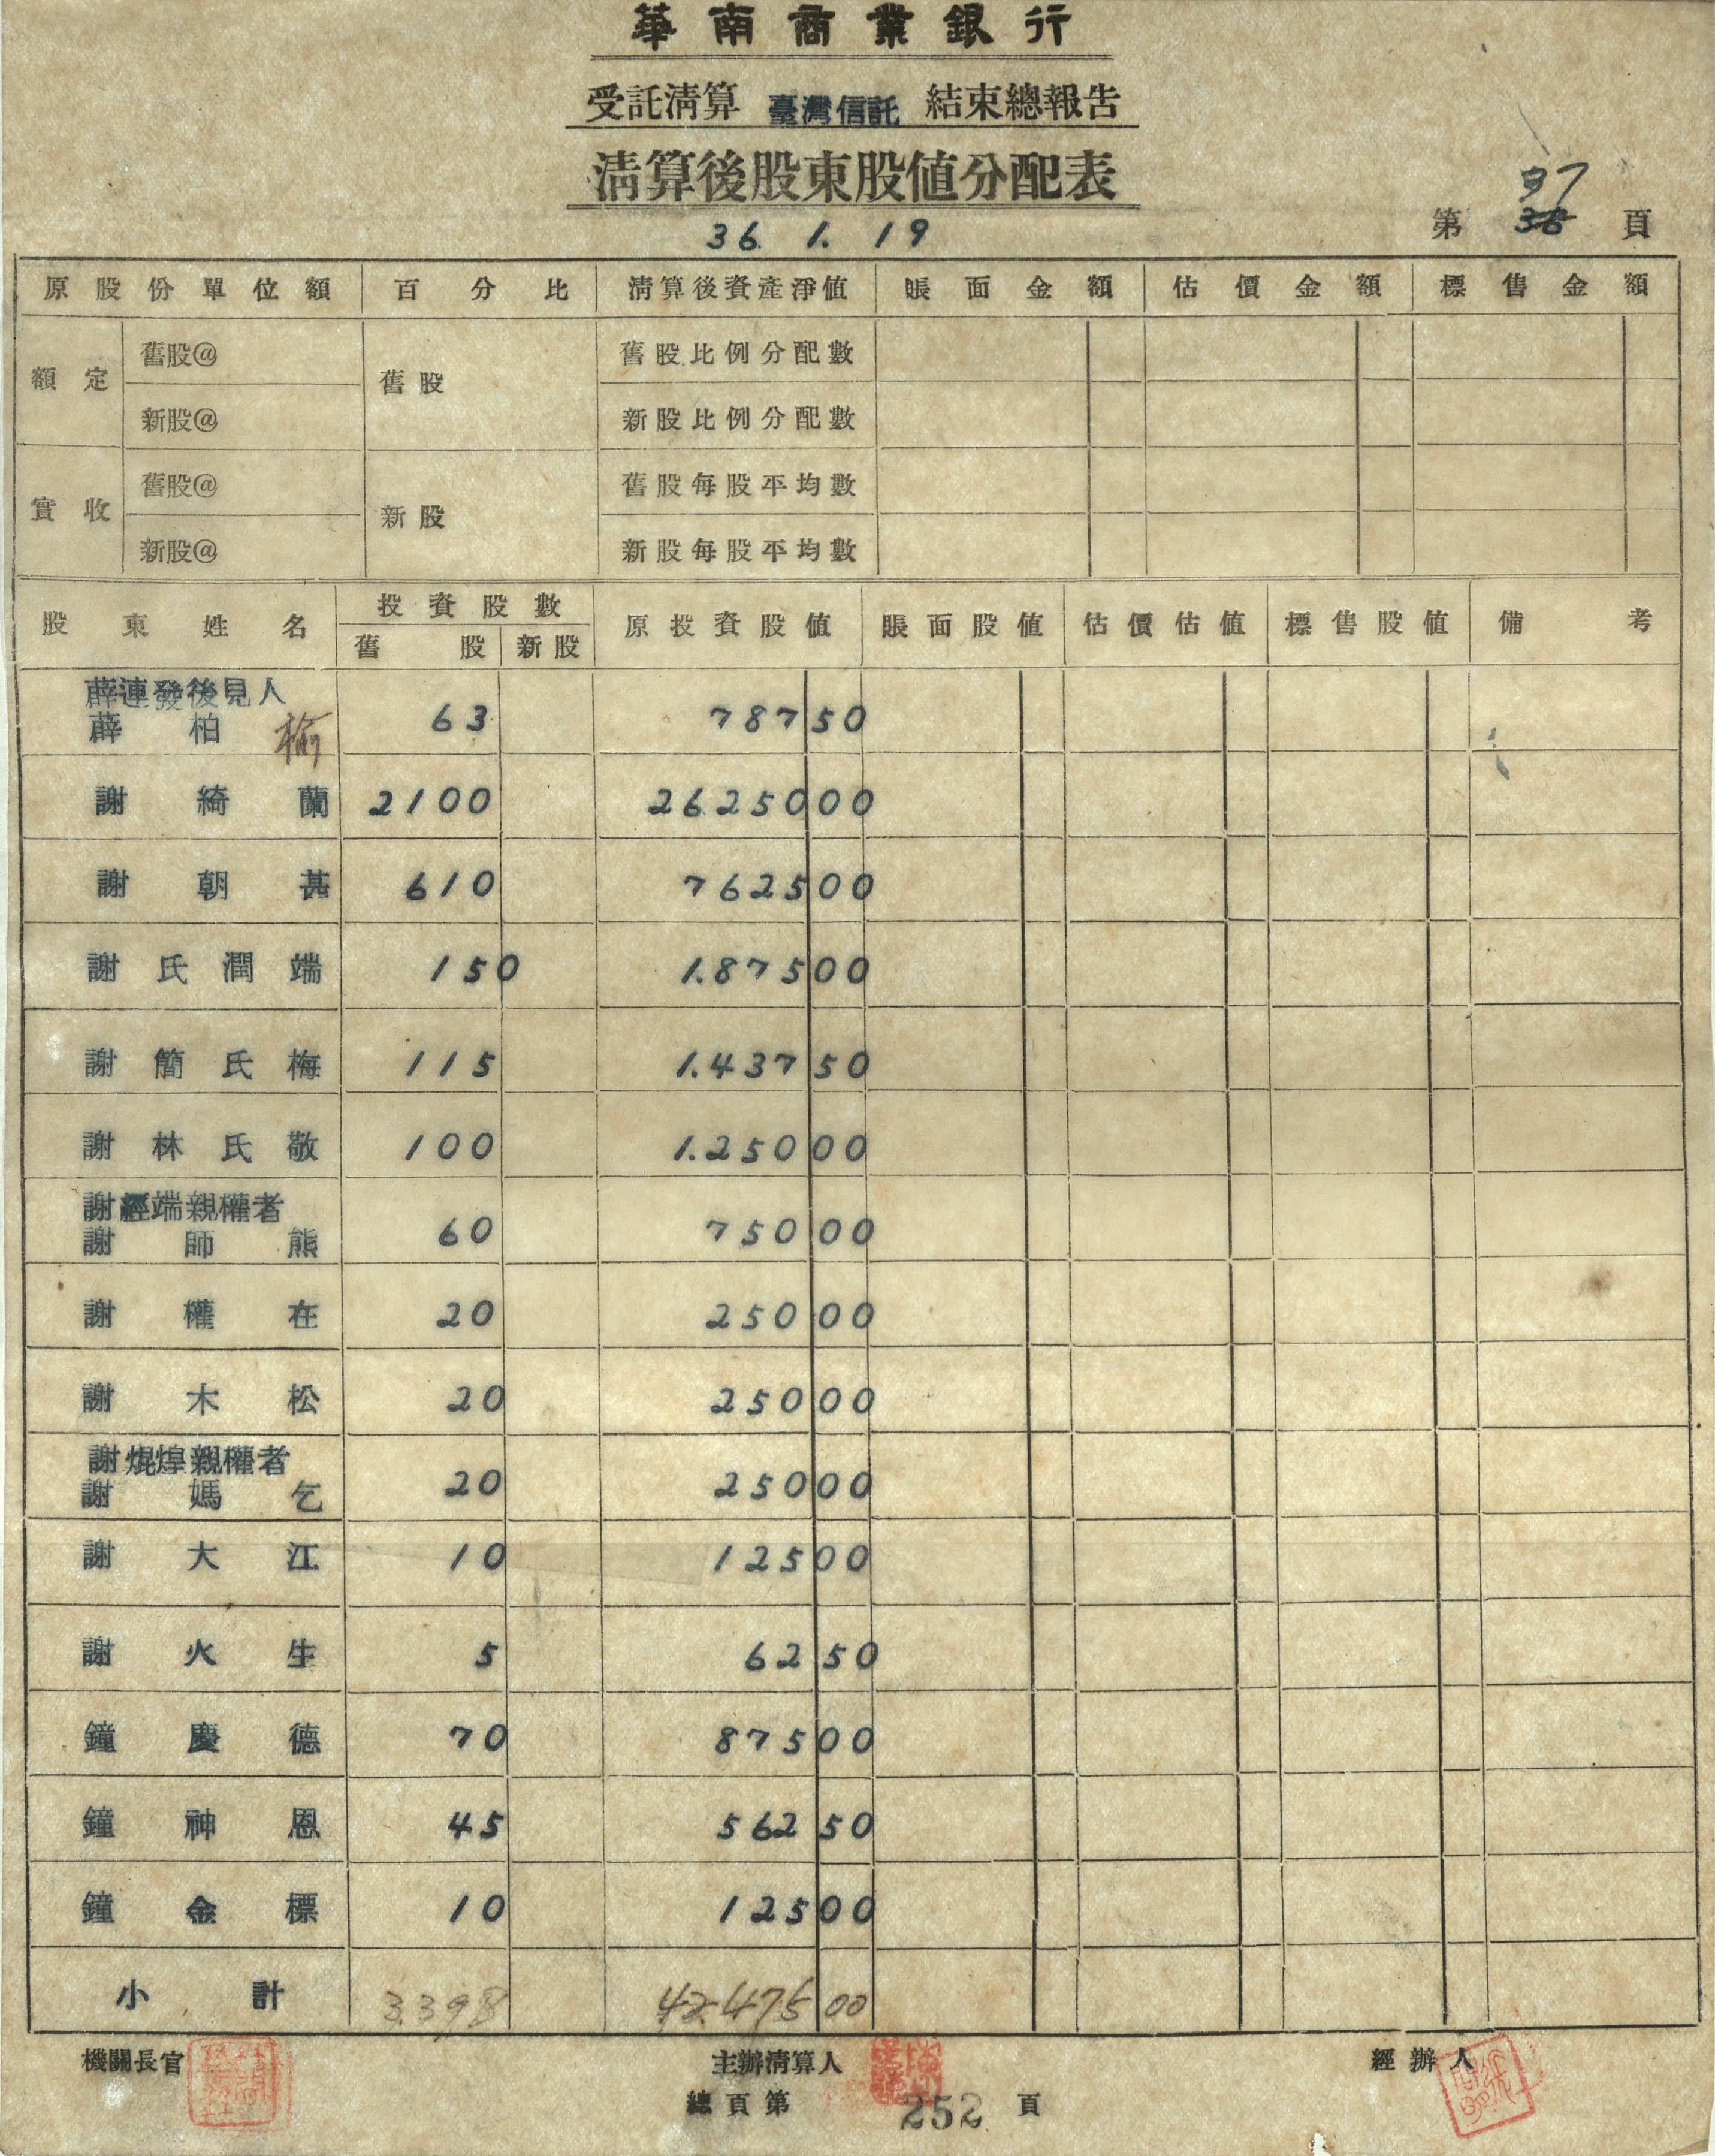 華南商業銀行
受託清算 臺灣信託 結束總報告
清算後股東股值分配表
36. 1. 19
37
第 36 頁
原股份單位額 百分比 清算後資產淨值 賬面金額 估價金額 標售金額
額定 舊股@ 舊股 舊股比例分配數
新股@ 新股比例分配數
實收 舊股@ 新股 舊股每股平均數
新股@ 新股每股平均數
股東姓名 投資股數 原投資股值 賬面股值 估價估值 標售股值 備考
舊股 新股
薛連發後見人
薛柏榆 63 787 50
謝綺蘭 2100 26250 00
謝朝甚 610 7625 00
謝氏潤端 150 1.875 00
謝簡氏梅 115 1.437 50
謝林氏敬 100 1.250 00
謝經端親權者
謝師熊 60 750 00
謝權在 20 250 00
謝木松 20 250 00
謝焜煌親權者
謝媽乞 20 250 00
謝大江 10 125 00
謝火生 5 62 50
鐘慶德 70 875 00
鐘神恩 45 562 50
鐘金標 10 125 00
小計 3.398 42.475 00
機關長官 主辦清算人 經辦人
總頁第 252 頁